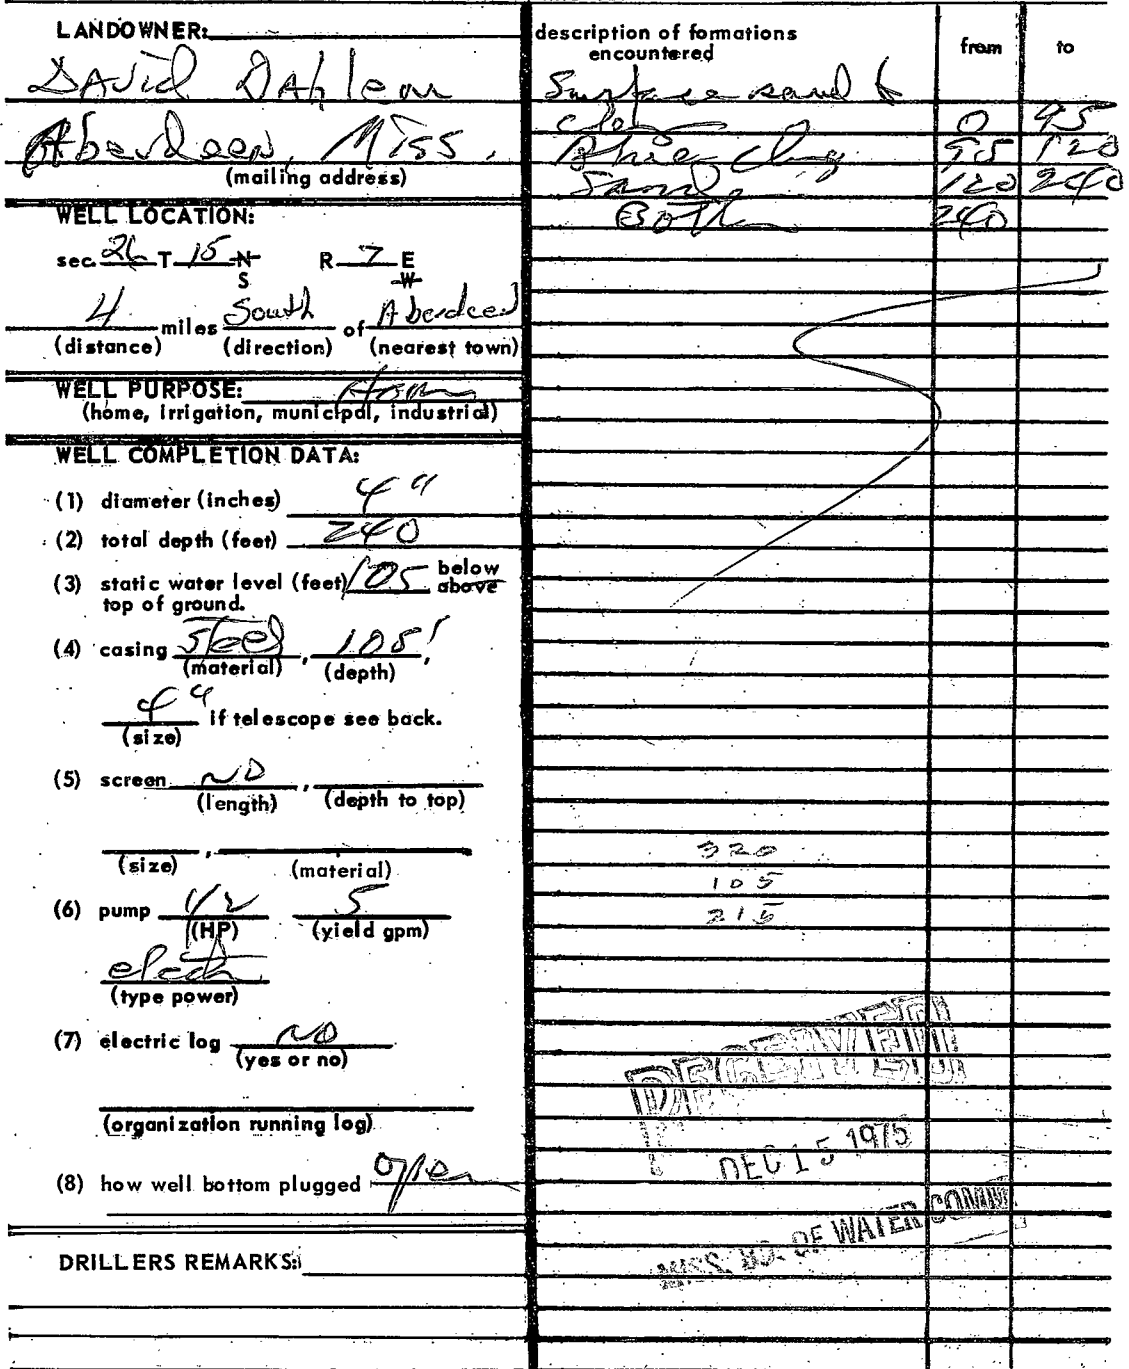 LANDOWNER:
David Dahlem
Aberdeen, Miss.
(mailing address)
WELL LOCATION:
sec. 26 T 15 N R 7 E
S W
4 miles South of Aberdeen
(distance) (direction) (nearest town)
WELL PURPOSE: Home
(home, irrigation, municipal, industrial)
WELL COMPLETION DATA:
(1) diameter (inches) 4"
(2) total depth (feet) 240
(3) static water level (feet) 105 below
above
top of ground.
(4) casing steel, 105',
(material) (depth)
4" if telescope see back.
(size)
(5) screen NO,
(length) (depth to top)
,
(size) (material)
(6) pump 1/2 5
(HP) (yield gpm)
elect
(type power)
(7) electric log NO
(yes or no)
(organization running log)
(8) how well bottom plugged open
DRILLERS REMARKS:
description of formations
encountered
from to
Surface sand &
clay 0 95
Blue clay 95 120
Sand 120 240
Bottom 240
320
105
215
RECEIVED
DEC 15 1975
MISS. BD. OF WATER COMM.